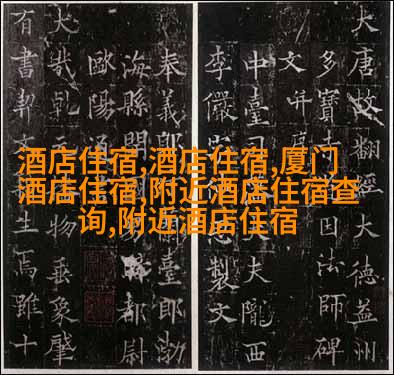 酒店住宿,酒店住宿,厦门
酒店住宿,附近酒店住宿查
询,附近酒店住宿
大唐故翻經大德益州
多寶寺因法師碑
文并
中臺司大夫隴西
李儼製文
奉義郎臺郎勃
海縣開國都尉
歐陽通
大哉乾元物垂象肇
有書契生焉雖十